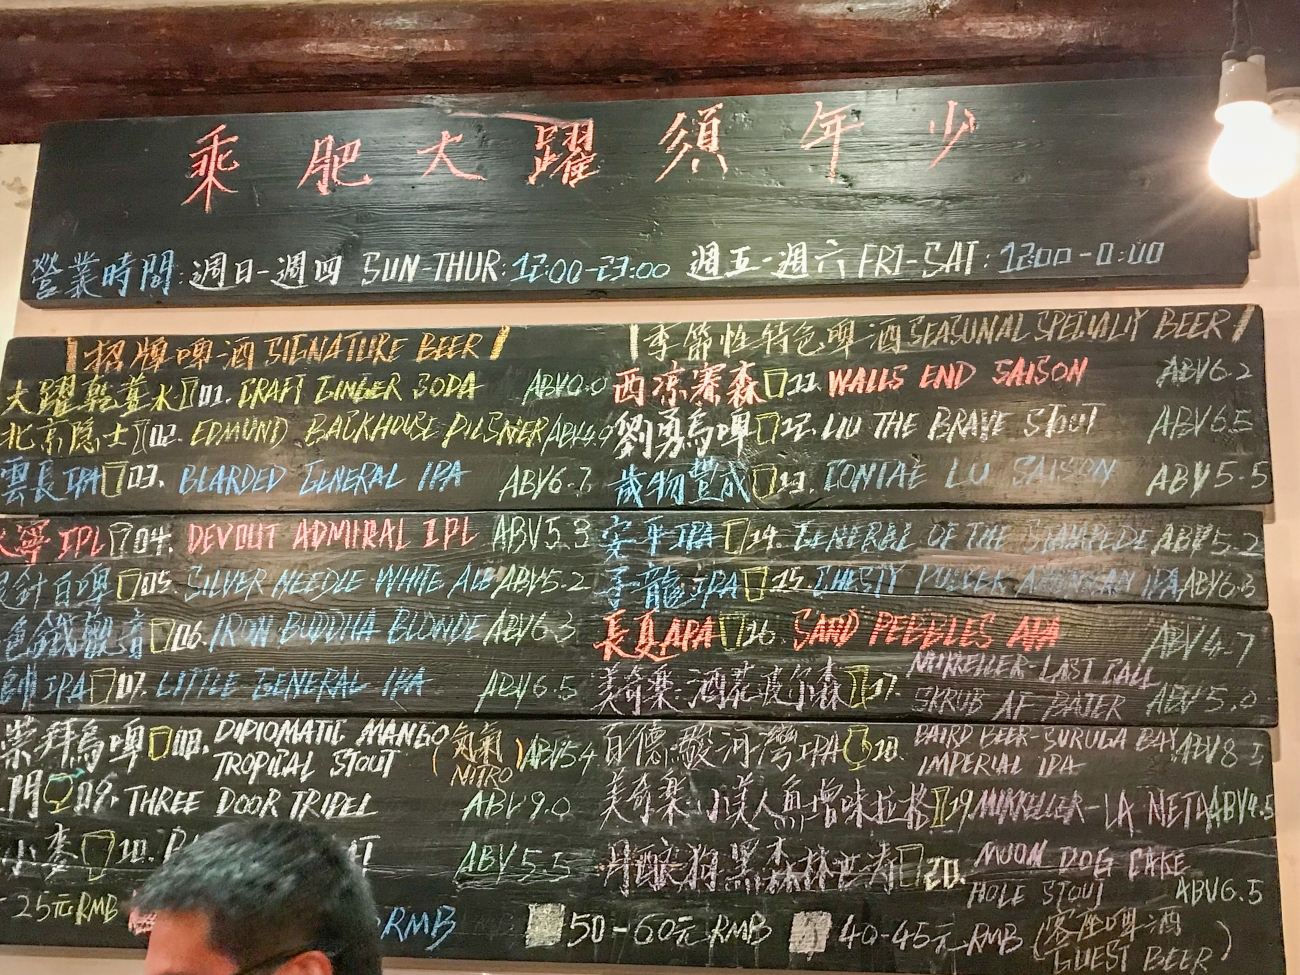 乘肥大躍須年少
營業時間: 週日-週四 SUN-THUR: 12:00-23:00 週五-週六 FRI-SAT: 12:00-0:00
招牌啤酒 SIGNATURE BEER
大躍乾薑水 01. DRAFT GINGER SODA ABV0.0
北京隐士 02. EDMUND BACKHOUSE PILSNER ABV4.9
雲長IPA 03. BEARDED GENERAL IPA ABV6.7
寧IPL 04. DEVOUT ADMIRAL IPL ABV5.3
針白啤 05. SILVER NEEDLE WHITE ALE ABV5.2
色鐵觀音 06. IRON BUDDHA BLONDE ABV6.3
帥IPA 07. LITTLE GENERAL IPA ABV6.5
崇拜烏啤 08. DIPLOMATIC MANGO TROPICAL STOUT (氮氣 NITRO) ABV5.4
門 09. THREE DOOR TRIPEL ABV9.0
小麥 10. ABV5.5
季節性特色啤酒 SEASUNAL SPECIALIY BEER
西凉賽森 11. WALLS END SAISON ABV6.2
劉勇烏啤 12. LIU THE BRAVE STOUT ABV6.5
歲物豐成 13. LU SAISON ABV5.5
安平IPA 14. GENERAL OF THE STAMPEDE ABV5.2
子龍IPA 15. CHESTY PULLER AMERICAN IPA ABV6.3
長夏APA 16. SAND PEBBLES APA ABV4.7
美奇樂: 酒花波尔森 17. MIKKELLER-LAST CALL SKRUB AF BAJER ABV5.0
百德-駿河灣IPA 18. BAIRD BEER-SURUGA BAY IMPERIAL IPA ABV8
美奇樂-小美人魚增味拉格 19 MIKKELLER-LA NETA ABV4.5
月酿狗黑森林 20. MOON DOG CAKE HOLE STOUT ABV6.5
25元RMB RMB 50-60元RMB 40-45元RMB (客座啤酒 GUEST BEER)